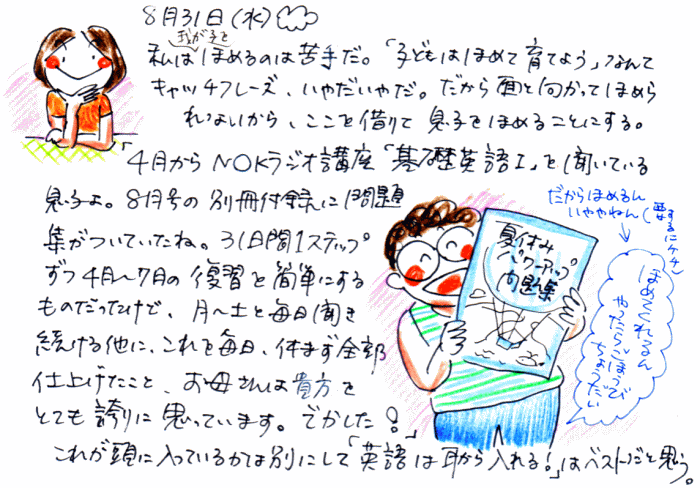 8月31日(水)
我が子を
私はほめるのは苦手だ。「子どもはほめて育てよう」なんて
キャッチフレーズ、いやだいやだ。だから面と向かってほめら
れないから、ここを借りて息子をほめることにする。
「4月からNOKラジオ講座「基礎英語I」を聞いている
息子よ。8月号の別冊付録に問題
集がついていたね。31日間1ステップ
ずつ4月〜7月の復習を簡単にする
ものだったけど、月〜土と毎日聞き
続ける他に、これを毎日、休まず全部
仕上げたこと、お母さんは貴方を
とても誇りに思っています。でかした!」
これが頭に入っているかは別にして「英語は耳から入れる!」はベストだと思う。
夏休み
パワーアップ
問題集
だからほめるん
いややねん(要するにケチ)
ほめてくれるん
やったらごほうび
ちょうだい